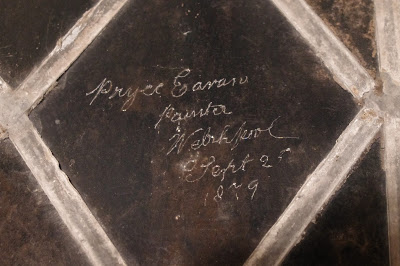 Pryce
Painter
Welchpool
Sept
1879